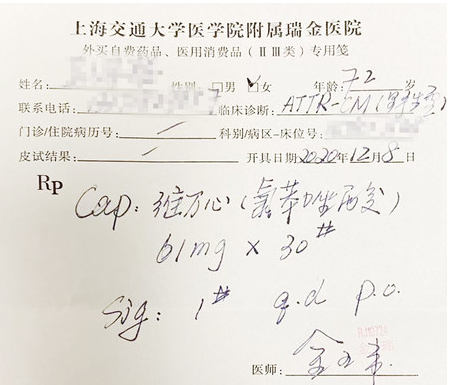 上海交通大学医学院附属瑞金医院
外买自费药品、医用消费品（ⅡⅢ类）专用笺
姓名: 性别: □男 ☑女 年龄: 72 岁
联系电话: 临床诊断: ATTR-CM(野生型)
门诊/住院病历号: / 科别/病区-床位号:
皮试结果: / 开具日期 2020 年 12 月 8 日
Rp
Cap: 维万心(氯苯唑酸)
61mg × 30#
Sig: 1# q.d p.o.
医师: